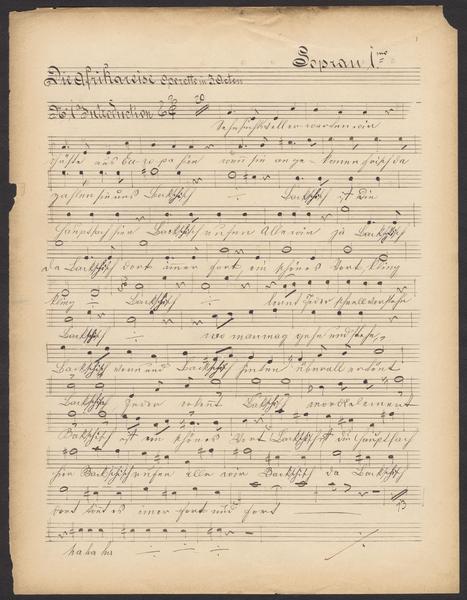 Sopran 1mo
Die Afrikareise Operette in 3 Acten
No 1 Introduction
20
Sehnsuchtvoll erwarten wir
Gäste aus Europa hier wenn sie angekommen frisch da
zahlen sie uns Backschisch ÷ Backschisch ist die
Hauptsach hier Backschisch rufen Alle wir ja Backschisch
da Backschisch dort imer fort ein schönes Wort kling
kling ÷ Backschisch ÷ lernt Jeder schnell verstehn
Backschisch ÷ wo man mag gehn und stehn
Backschisch vorn und Backschisch hinten überall ertönt
Backschisch Jeder erkent Bakschisch
Bakschisch ist ein schönes Wort Backschisch ist die Hauptsach
hier Backschisch rufen alle wir Backschisch da Backschisch
dort tönt es imer fort und fort
ha ha ha ÷ ÷ ÷